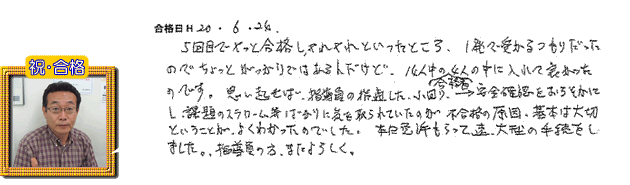 祝・合格
合格日H 20・6・24.
5回目でやっと合格し、やれやれといったところ、1発で受かるつもりだった
のでちょっとがっかりではあるんだけど、14人中の4人の中に入れて良かった
のです。思い起せば、指導員の指適した、小回り、安全確認をおろそかに
し、課題のスラローム等ばかりに気を取られていたのが不合格の原因、基本は大切
ということが、よくわかったのでした。本日免許もらって、大型の手続をし
ました。指導員の方、またよろしく。